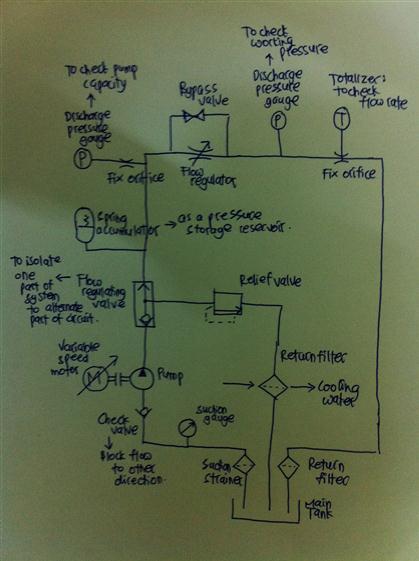 To check pump
capacity
Discharge
pressure
gauge
P
Fix orifice
Bypass
valve
Flow
regulator
To check
working
pressure
Discharge
pressure
gauge
P
Totalizer:
to check
flow rate
T
Fix orifice
Spring
accumulator
as a pressure
storage reservoir.
To isolate
one
part of
system
to alternate
part of circuit.
Flow
regulating
valve
Relief valve
Variable
speed
motor
M
Pump
Return filter
Cooling
water
Check
valve
Block flow
to other
direction.
Suction
gauge
Suction
strainer
Return
filter
Main
Tank